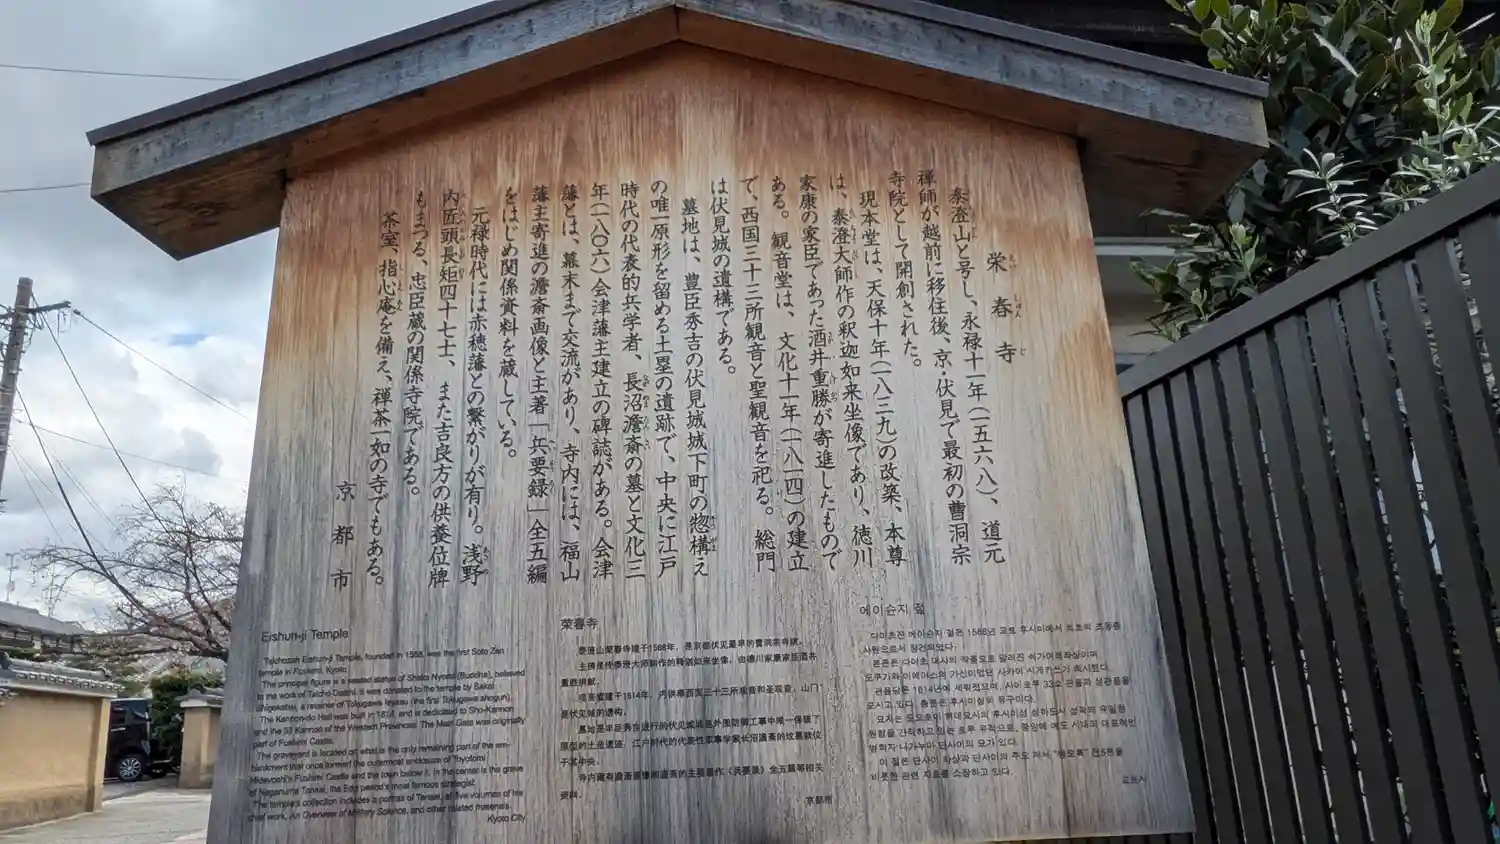 栄春寺
泰澄山と号し、永禄十一年(一五六八)、道元
禅師が越前に移住後、京・伏見で最初の曹洞宗
寺院として開創された。
現本堂は、天保十年(一八三九)の改築、本尊
は、泰澄大師作の釈迦如来坐像であり、徳川
家康の家臣であった酒井重勝が寄進したもので
ある。観音堂は、文化十一年(一八一四)の建立
で、西国三十三所観音と聖観音を祀る。総門
は伏見城の遺構である。
墓地は、豊臣秀吉の伏見城城下町の惣構え
の唯一原形を留める土塁の遺跡で、中央に江戸
時代の代表的兵学者、長沼澹斎の墓と文化三
年(一八〇六)会津藩主建立の碑誌がある。会津
藩とは、幕末まで交流があり、寺内には、福山
藩主寄進の澹斎画像と主著「兵要録」全五編
をはじめ関係資料を蔵している。
元禄時代には赤穂藩との繋がりが有り。浅野
内匠頭長矩四十七士、また吉良方の供養位牌
もまつる、忠臣蔵の関係寺院である。
茶室、指心庵を備え、禅茶一如の寺でもある。
京都市
Eishun-ji Temple
Taichozan Eishun-ji Temple, founded in 1568, was the first Soto Zen
temple in Fushimi, Kyoto.
The principal figure is a seated statue of Shaka Nyorai (Buddha), believed
to be the work of Taicho Daishi. It was donated to the temple by Sakai
Shigekatsu, a retainer of Tokugawa Ieyasu (the first Tokugawa shogun).
The Kannon-do Hall was built in 1814, and is dedicated to Sho-Kannon
and the 33 Kannon of the Western Provinces. The Main Gate was originally
part of Fushimi Castle.
The graveyard is located on what is the only remaining part of the em-
bankment that once formed the outermost enclosure of Toyotomi
Hideyoshi's Fushimi Castle and the town below it. In the center is the grave
of Naganuma Tansai, the Edo period's most famous strategist.
The temple's collection includes a portrait of Tansai, all five volumes of his
chief work, An Overview of Military Science, and other related materials.
Kyoto City
荣春寺
泰澄山荣春寺建于1568年，是京都伏见最早的曹洞宗寺院。
主佛是传泰澄大师制作的释迦如来坐像，由德川家康家臣酒井
重胜捐献。
观音堂建于1814年，内供奉西国三十三所观音和圣观音，山门
是伏见城的遗构。
原型的土垒遗迹，江户时代的代表性军事学家长沼澹斋的坟墓就位
于其中央。
寺内藏有澹斋画像和澹斋的主要著作《兵要录》全五篇等相关
资料。
京都市
에이슌지 절
다이초잔 에이슌지 절은 1568년 교토 후시미에서 최초의 조동종
사원으로서 창건되었다.
본존은 다이초 대사의 작품으로 알려진 석가여래좌상이며
도쿠가와 이에야스의 가신이었던 사카이 시게카쓰가 희사했다.
모시고 있다. 총문은 후시미성의 유구이다.
이 절은 단사이 화상과 단사이의 주요 저서 "병요록" 전5편을
비롯한 관련 자료를 소장하고 있다.
교토시